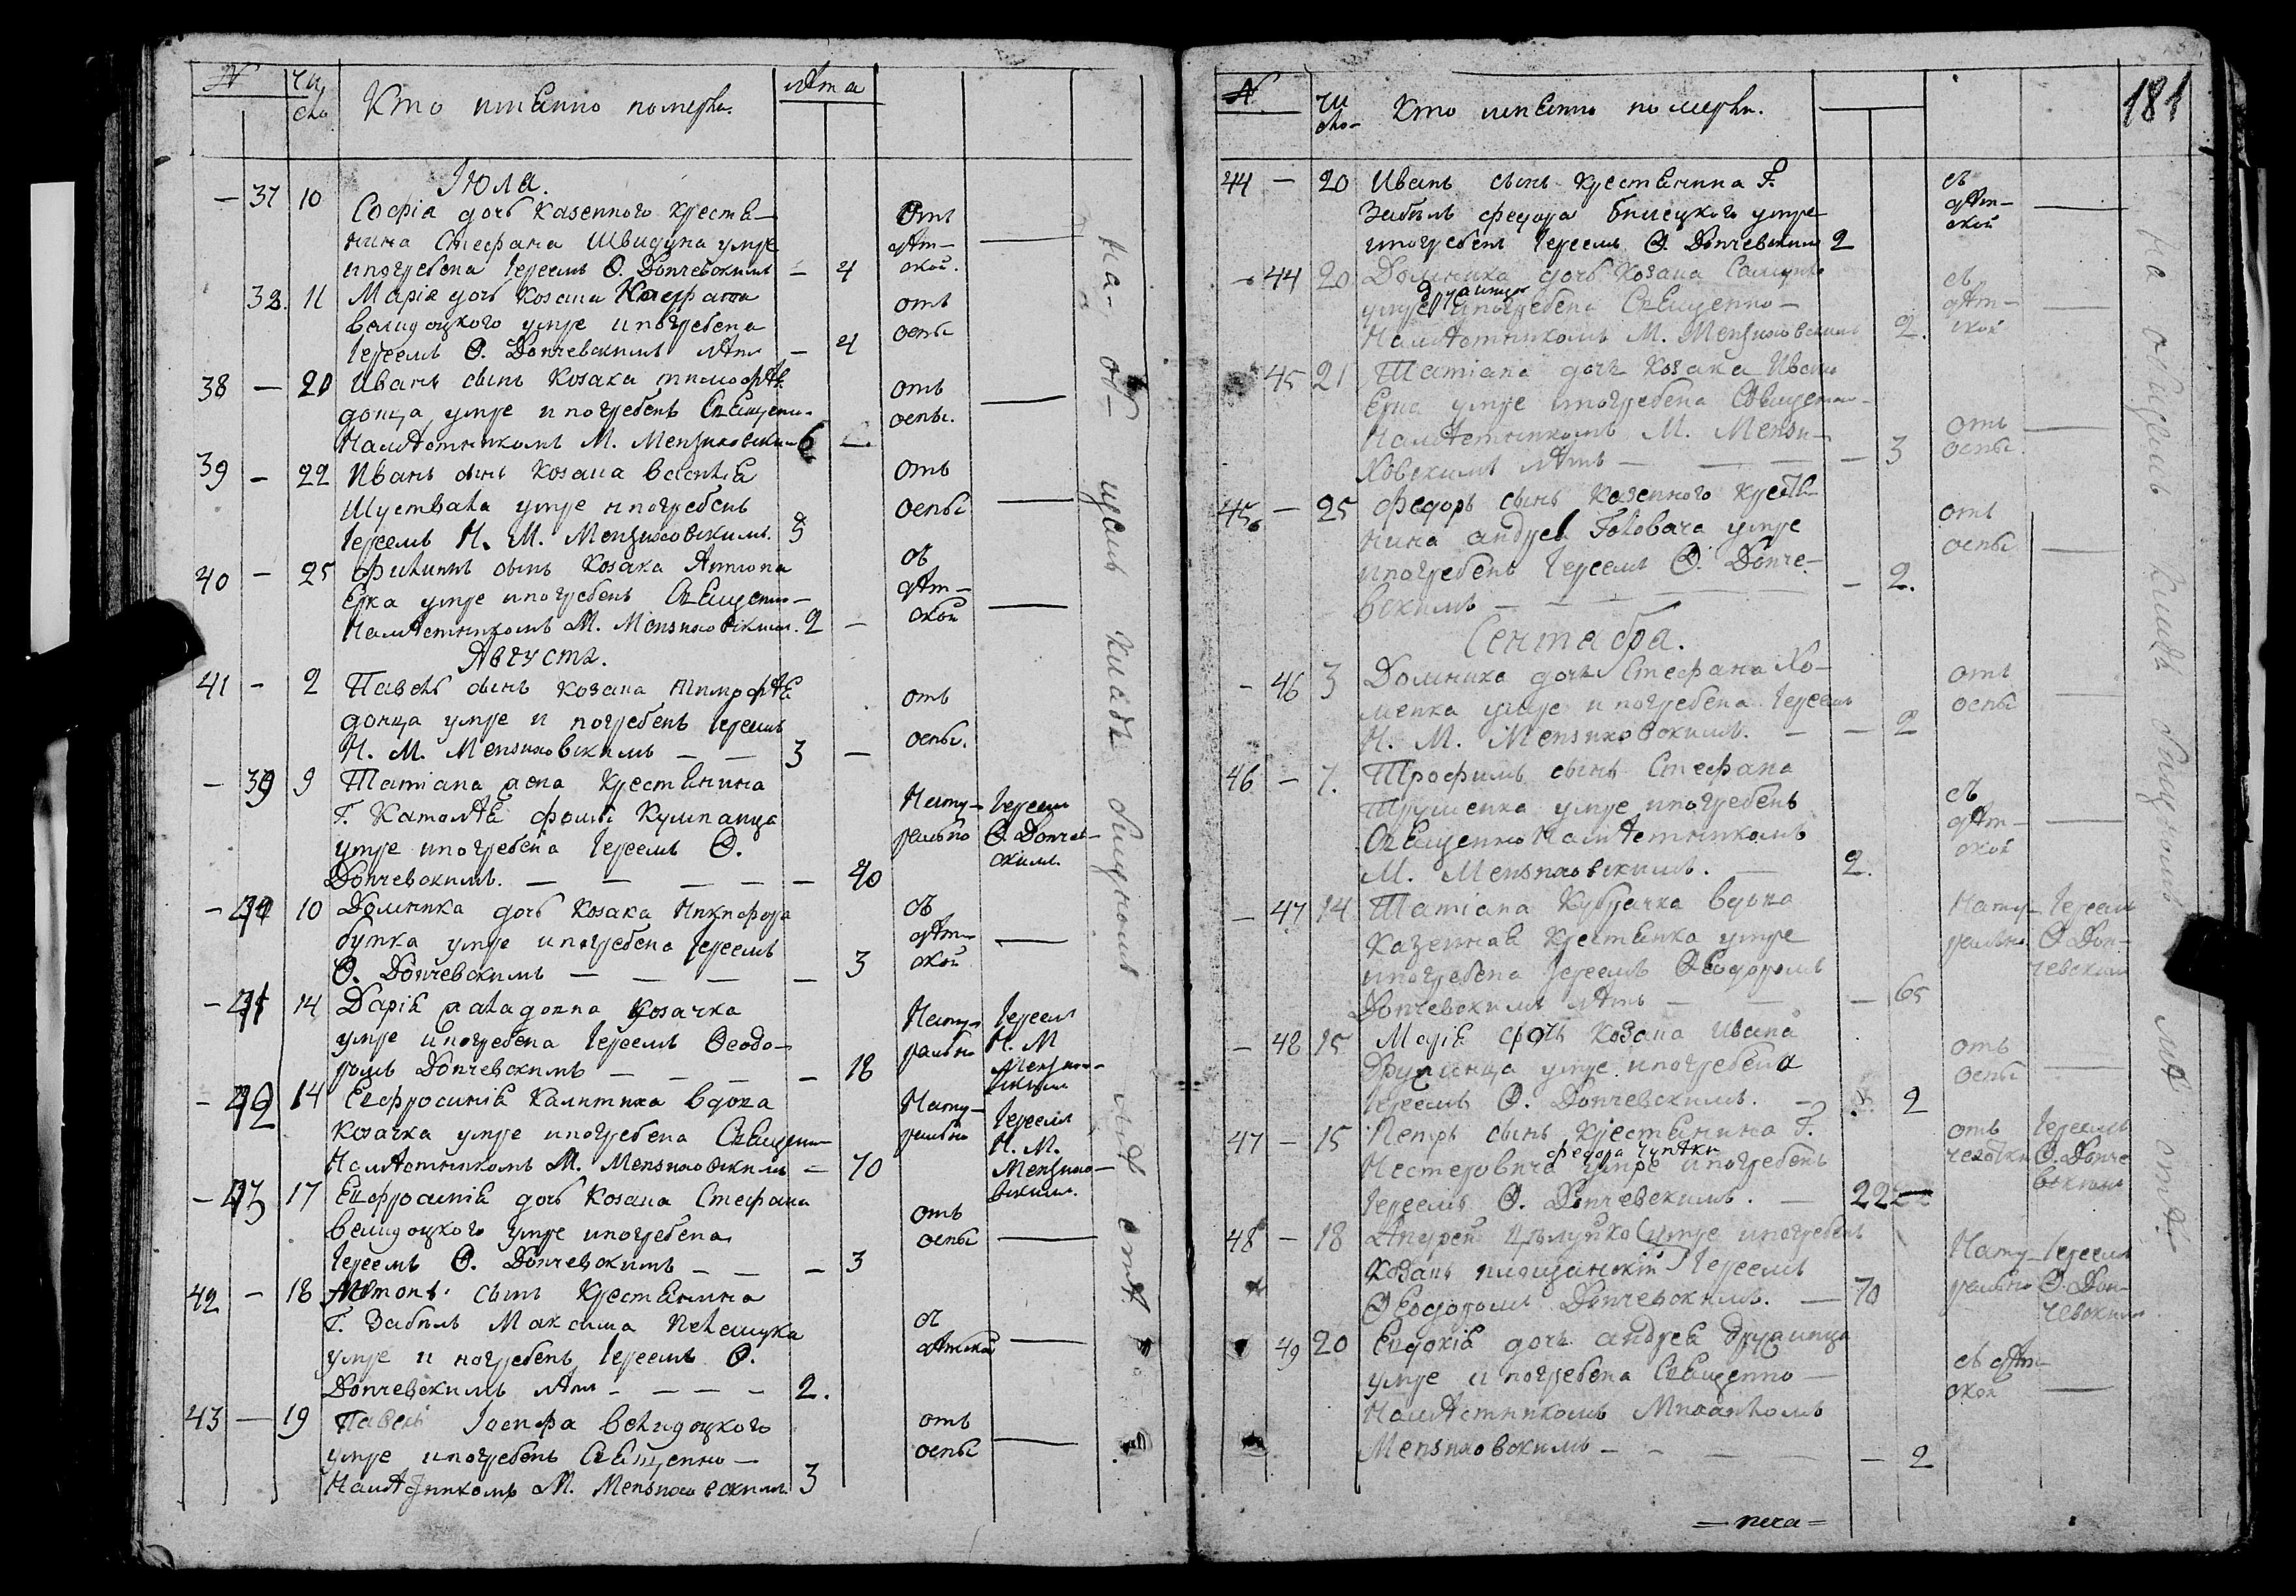 № Чи, сло Кто имѣнно померъ. лѣта
Іюля.
— 37 10 Софія дочъ казенного крестѣ—
нина Стефана Швидуна умре
и погребена Іереемъ Ѳ. Дончевскимъ — 4
Отъ дѣт— ской. —
32. 11 Марія дочъ козака
велидоцкого умре и погребена
Іереемъ Ѳ. Дончевскимъ лѣтъ — 4
отъ оспы
38 — 20 Иванъ сынъ козака тимофѣя
донца умре и погребенъ Свѣщенно-
Намѣстникомъ М. Мензиховскимъ 6 —
отъ оспы. —
39 — 22 Иванъ сынъ козака василѣя
Шуствала умре и погребенъ
Іереемъ Н. М. Мензиховскимъ. 3
отъ оспы —
40 — 25 филипъ сынъ козака Антона
Ерка умре и погребенъ Свѣщенно—
Намѣстникомъ М. Мензиховскимъ. 2 —
съ дѣт— ской —
Августъ.
41 — 2 Павелъ сынъ козака тимофѣя
донца умре и погребенъ Іереемъ
Н. М. Мензиховскимъ — — 3 —
отъ оспы.
— 39 9 Татіана жена крестѣнина
Г. Католѣя фомы Кумпанца
умре и погребена Іереемъ Ѳ.
Дончевскимъ. — — — — 40
Нату— рально Іереемъ Ѳ. Дончев— скимъ
— 40 10 Домника дочъ козака Никифора
бутка умре и погребена Іереемъ
Ѳ. Дончевскимъ — — — — 3
съ дѣт— ской —
— 41 14 Дарія козачка
умре и погребена Іереемъ Ѳеодо—
ромъ Дончевскимъ — — — — 18
Нату— рально Іереемъ Н. М Мензихо—
— 42 14 Евфросинія Калитика вдова
козачка умре и погребена Свѣщенно
Намѣстникомъ М. Мензиховскимъ — 70
Нату— рально Іереемъ Н. М. Мензихо— вскимъ.
— 43 17 Евфросинія дочъ козака Стефана
велидоцкого умре и погребена
Іереемъ Ѳ. Дончевскимъ — — — 3
отъ оспы —
42 — 18 Антонъ сынъ крестѣнина
Г. Забилъ Максима Пелещука
умре и погребенъ Іереемъ Ѳ.
Дончевскимъ лѣтъ — — — — 2.
съ дѣтской —
43 — 19 Павелъ Іосифа велидоцкого
умре и погребенъ Свѣщенно—
Намѣстникомъ М. Мензиховскимъ. 3
отъ оспы —
На об— щемъ
№ Чи сло— Кто имѣнно померъ. 181
44 — 20 Иванъ сынъ крестѣнина Г.
Забилъ федора билецкого умре
и погребенъ Іереемъ Ѳ. Дончевскимъ 2
съ дѣт— ской —
— 44 20 Домника дочъ козака
умре и погребена Свѣщенно—
Намѣстникомъ М. Мензиховскимъ 2.
съ дѣт— ской —
45 21 Татіана дочъ козака Ивана
Ерка умре и погребена Свѣщенно-
Намѣстникомъ М. Мензи—
ховскимъ лѣтъ — — — — 3
отъ оспы. —
45 — 25 федоръ сынъ казенного крестѣ—
нина андрея Головача умре
и погребенъ Іереемъ Ѳ. Донче—
вскимъ — — — — — 2.
отъ оспы —
Сентабра.
— 46 3 Домника дочъ Стефана Хо—
менка умре и погребена Іереемъ
Н. М. Мензиховскимъ. — — 2
отъ оспы —
46 — 7. Трофимъ сынъ Стефана
умре и погребенъ
Свѣщенно Намѣстникомъ
М. Мензиховскимъ. — 2.
съ дѣт— ской —
— 47 14 Татіана вдова
казенная крестѣнка умре
и погребена Іереемъ Ѳеодоромъ
Дончевскимъ лѣтъ — — — 65
Нату— рально Іереемъ Ѳ Дон— чевскимъ
— 48 15 Марія дочъ козака Ивана
умре и погребена
Іереемъ Ѳ. Дончевскимъ. — 2
отъ оспы —
47 — 15 Петръ сынъ крестѣнина Г.
федора
Нестеровича умре и погребенъ
Іереемъ Ѳ. Дончевскимъ. — 22
отъ Іереемъ Ѳ. Донче вскимъ
48 — 18 Андрей умре и погребенъ
козакъ Іереемъ
Ѳеодоромъ Дончевскимъ. — 70
Нату— рально Іереемъ Ѳ. Дон— чевскимъ
49 20 Евдокія дочъ андрея
умре и погребена Свѣщенно—
Намѣстникомъ Михаиломъ
Мензиховскимъ — — — — 2
съ дѣт— ской —
На общемъ